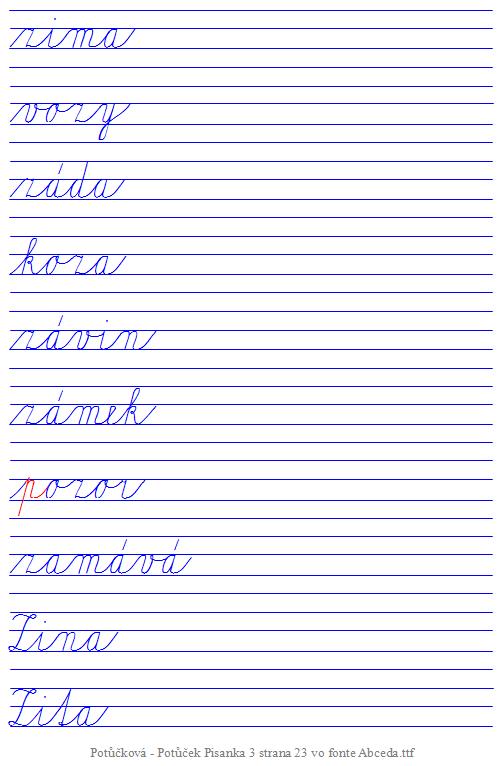 zima
vozy
záda
koza
závin
zámek
pozor
zamává
Zina
Zita
Potůčková - Potůček Pisanka 3 strana 23 vo fonte Abceda.ttf